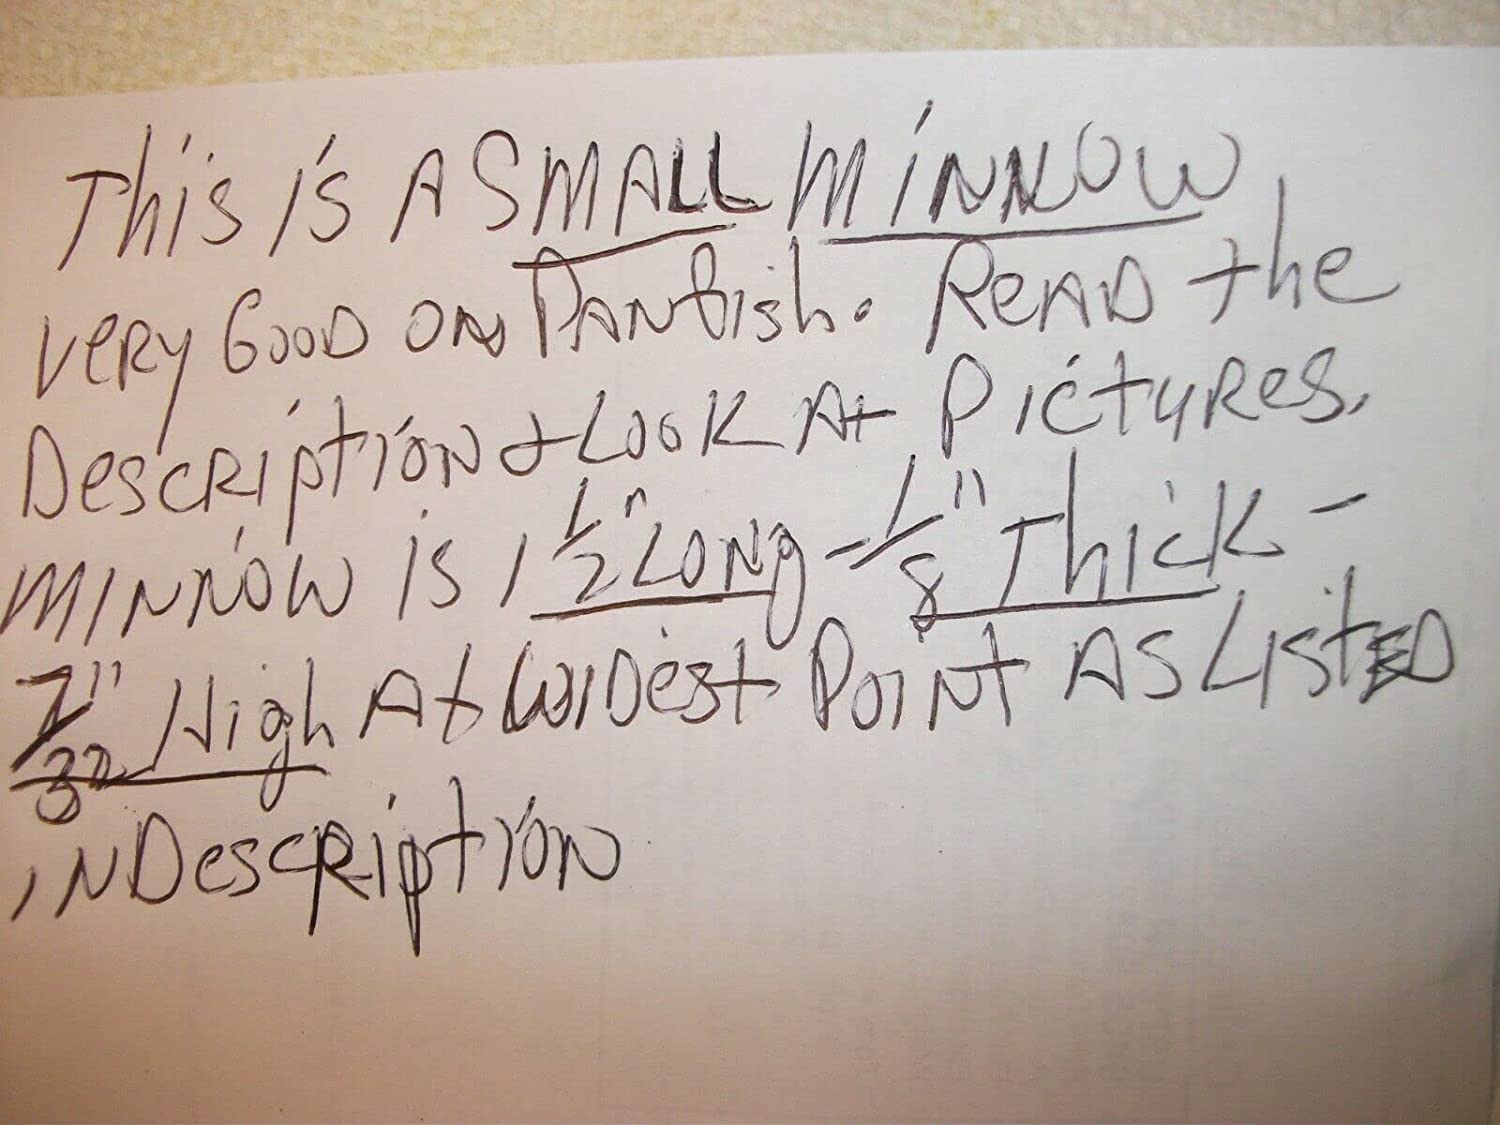 This is A SMALL MiNNOW
very Good on Panfish. Read the
Description + Look At Pictures.
Minnow is 1 1/2" Long - 1/8" Thick -
7/32" High At Widest Point As Listed
in Description